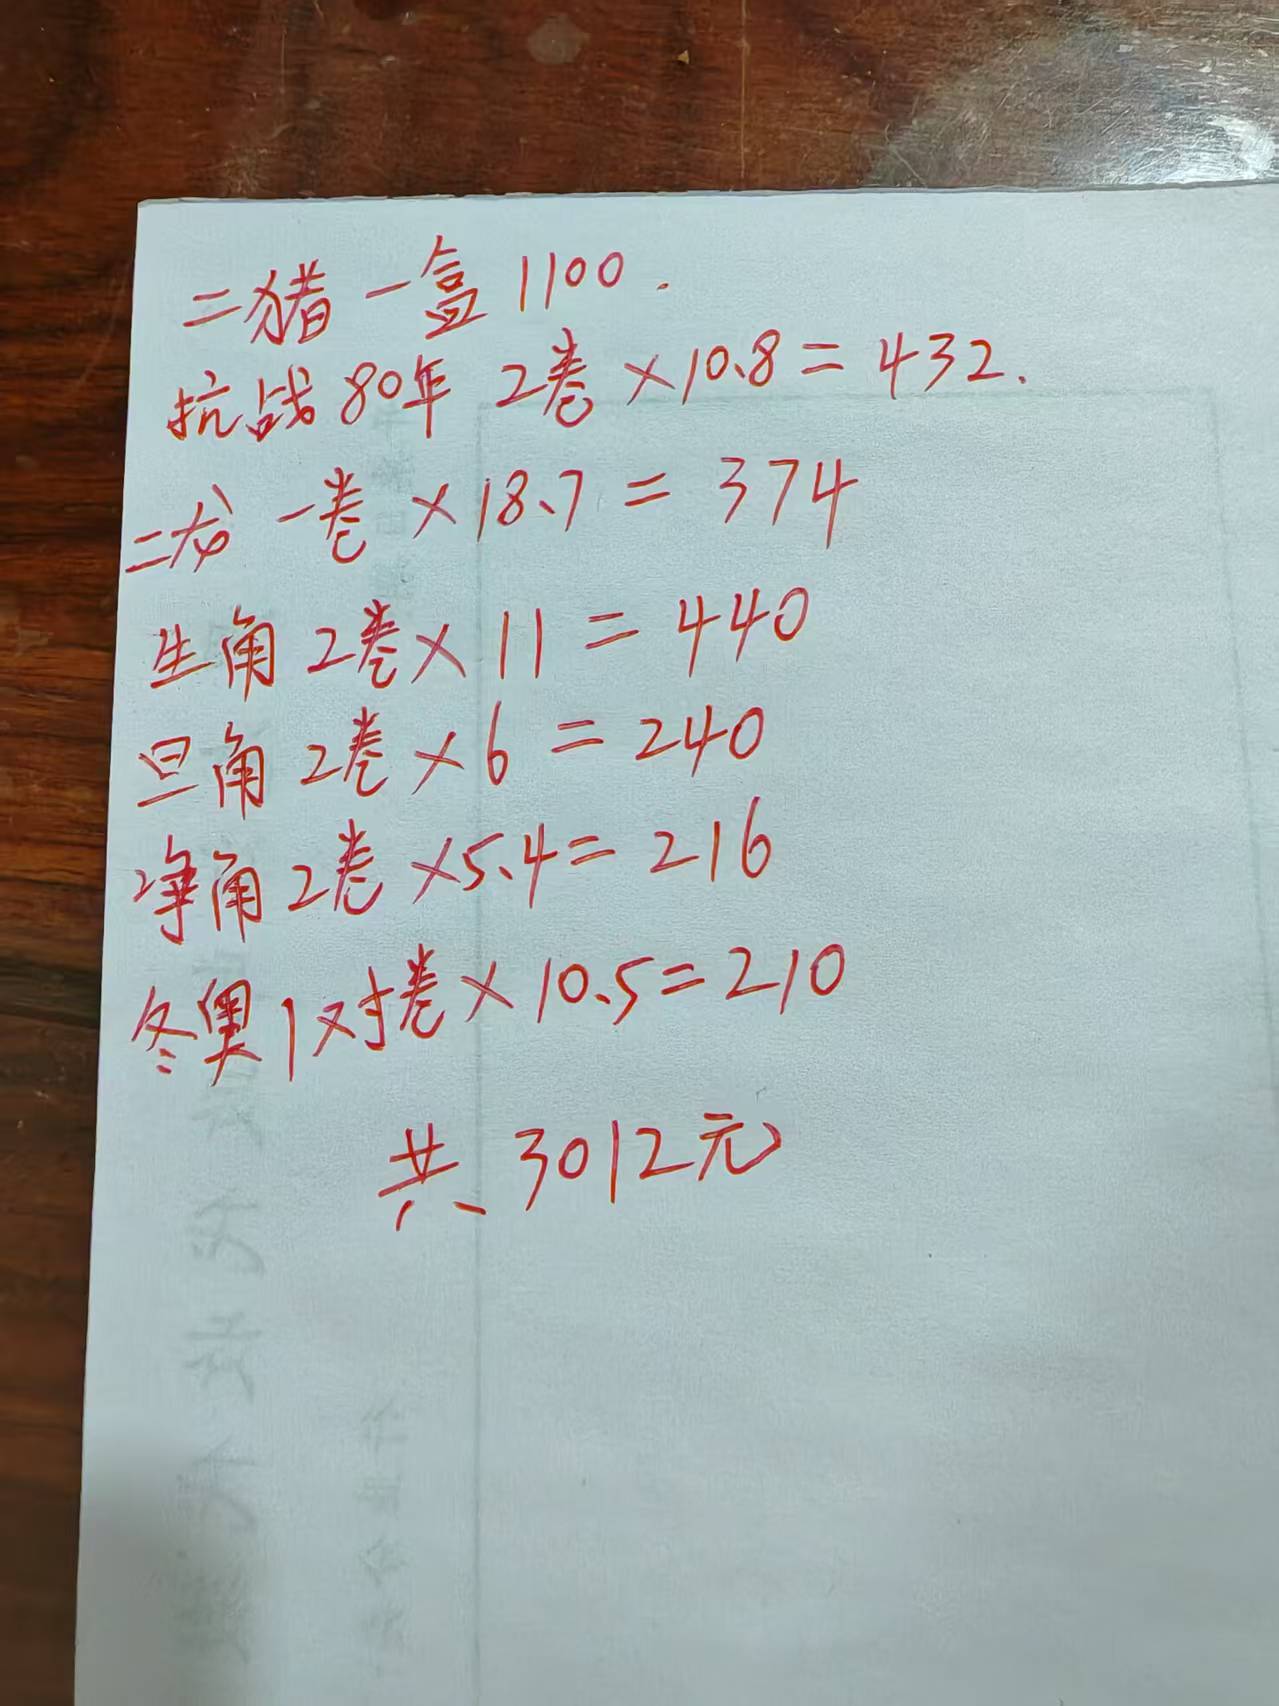 二猪一盒1100.
抗战80年 2卷×10.8=432.
二龙 一卷×18.7=374
生角2卷×11=440
旦角2卷×6=240
净角2卷×5.4=216
冬奥1对卷×10.5=210
共3012元